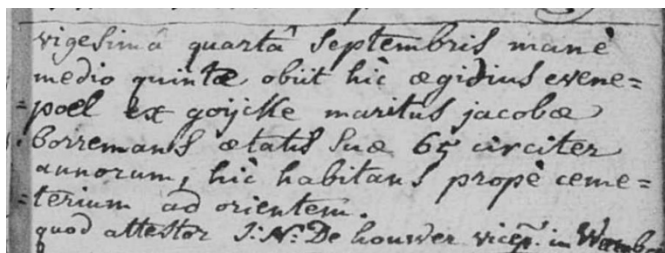 vigesimâ quartâ Septembris manè
medio quintæ obiit hìc ægidius evene=
=poel ex goijcke maritus jacobæ
borremans ætatis Suæ 65 circiter
annorum, hìc habitans propè ceme=
=terium ad orientem.
quod attestor J: N: De houwer vicep. in